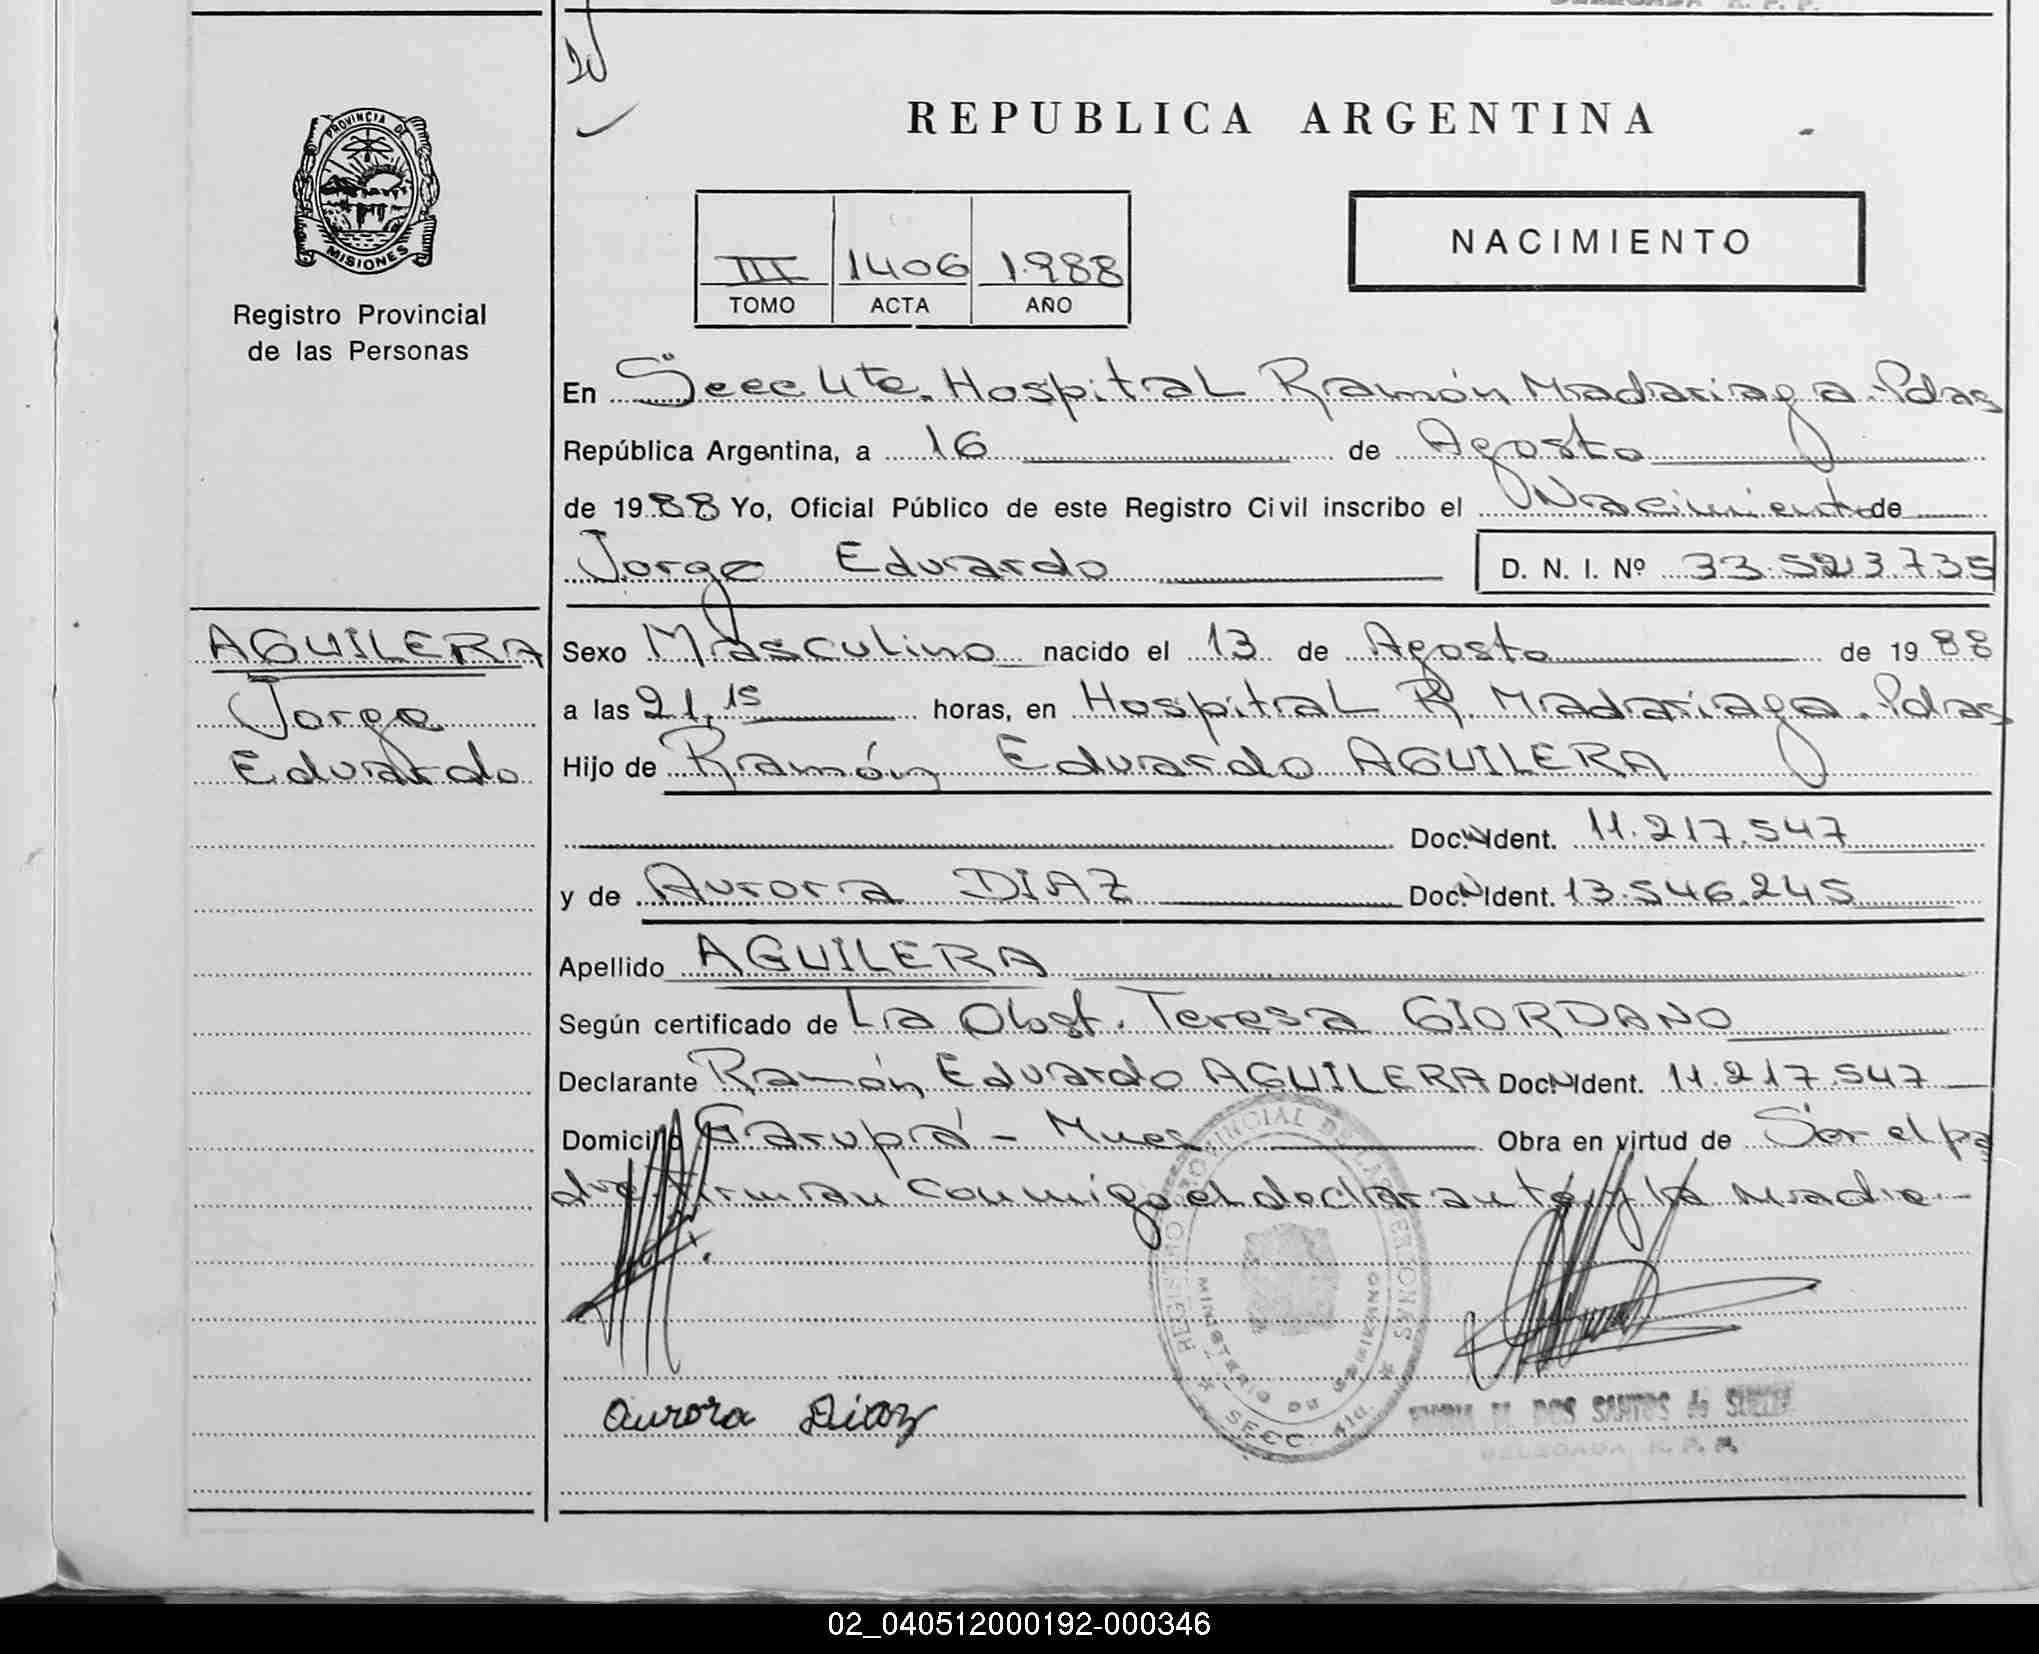 DELEGADA R. P. P.
REPUBLICA ARGENTINA
PROVINCIA DE
MISIONES
Registro Provincial
de las Personas
NACIMIENTO
III 1406 1.988
TOMO ACTA AÑO
En Secc 4ta. Hospital Ramón Madariaga. Pdas
República Argentina, a 16 de Agosto
de 1988 Yo, Oficial Público de este Registro Civil inscribo el Nacimiento de
Jorge Eduardo D. N. I. Nº 33.523.735
AGUILERA
Jorge
Eduardo
Sexo Masculino nacido el 13 de Agosto de 1988
a las 21,15 horas, en Hospital R. Madariaga. Pdas
Hijo de Ramón Eduardo AGUILERA
Doc. Ident. 11.217.547
y de Aurora DIAZ Doc. Ident. 13.546.245
Apellido AGUILERA
Según certificado de La Obst. Teresa GIORDANO
Declarante Ramón Eduardo AGUILERA Doc. Ident. 11.217.547
Domicilio Garupá - Mnes Obra en virtud de Ser el pa
dre. Firman conmigo el declarante y la Madre
REGISTRO PROVINCIAL DE LAS PERSONAS
MINISTERIO DE GOBIERNO
SECC. 4ta.
Aurora Diaz
M. DOS SANTOS de
DELEGADA R. P. P.
02_040512000192-000346